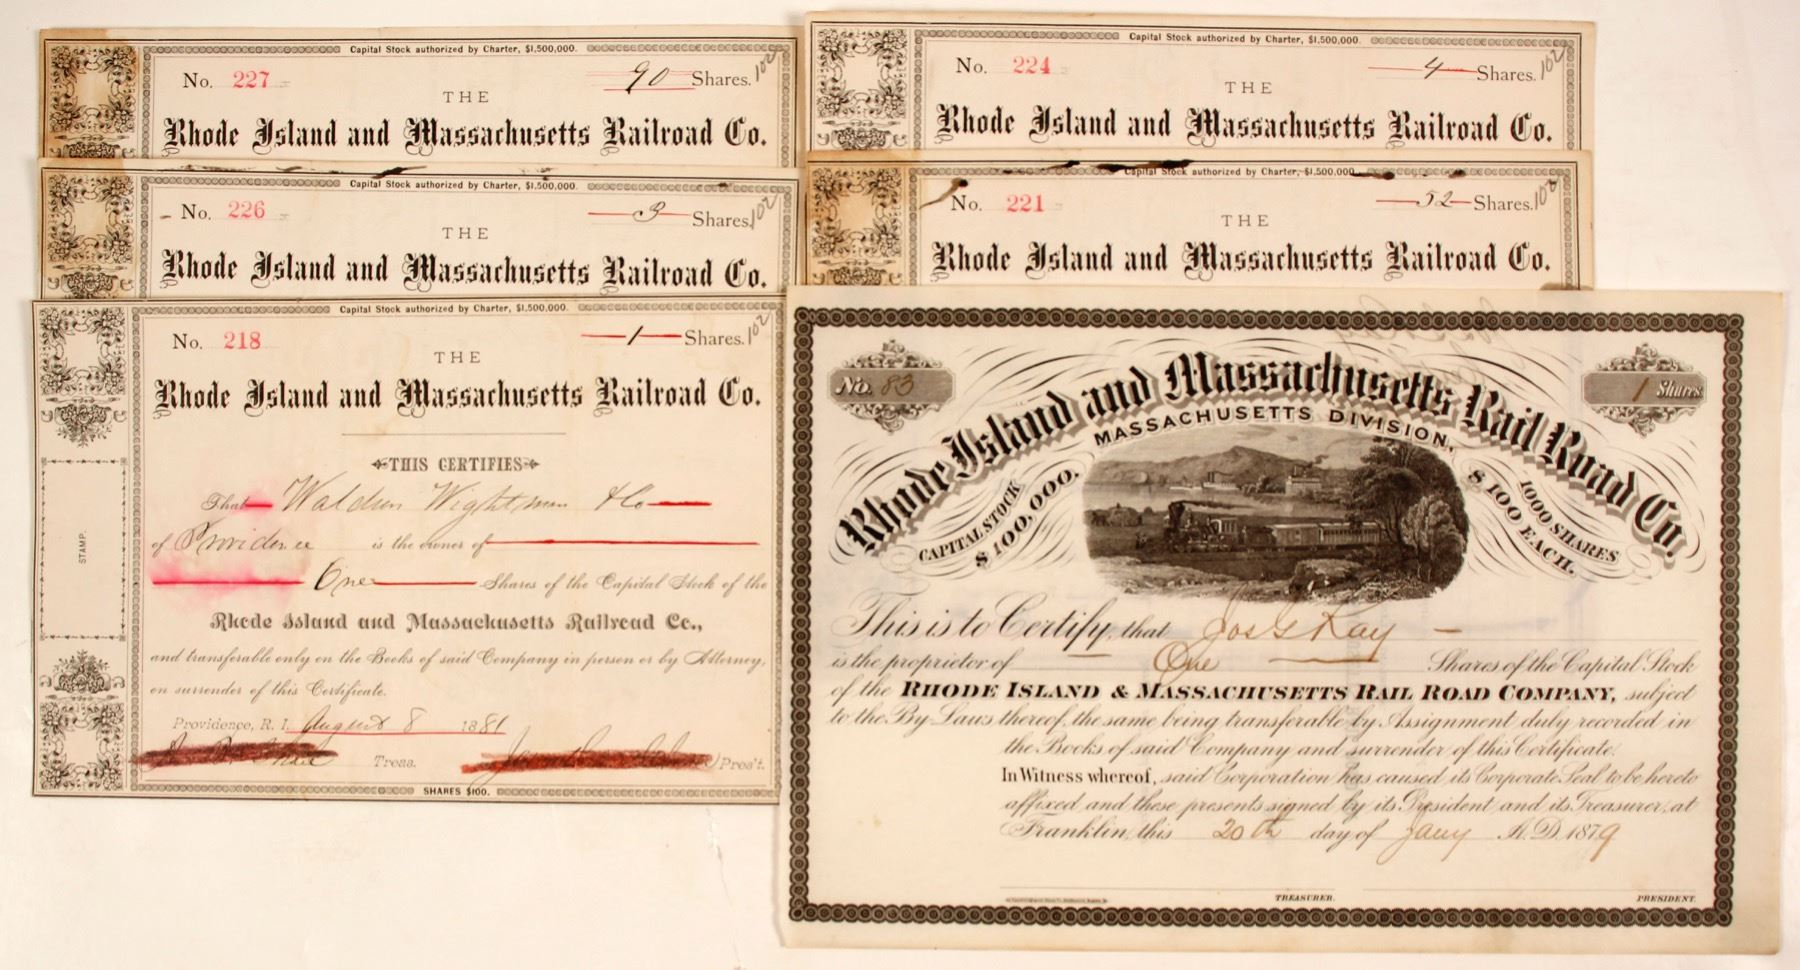 Capital Stock authorized by Charter, $1,500,000.
No. 227 90 Shares. 102
THE
Rhode Island and Massachusetts Railroad Co.
Capital Stock authorized by Charter, $1,500,000.
No. 226 3 Shares. 102
THE
Rhode Island and Massachusetts Railroad Co.
Capital Stock authorized by Charter, $1,500,000.
No. 218 1 Shares. 102
THE
Rhode Island and Massachusetts Railroad Co.
THIS CERTIFIES
That Waldron Wightman & Co
of Providence is the owner of
One Shares of the Capital Stock of the
Rhode Island and Massachusetts Railroad Co.,
and transferable only on the Books of said Company in person or by Attorney,
on surrender of this Certificate.
Providence, R. I. August 8 1881
Treas. Pres't.
SHARES $100.
STAMP.
Capital Stock authorized by Charter, $1,500,000.
No. 224 4 Shares. 102
THE
Rhode Island and Massachusetts Railroad Co.
Capital Stock authorized by Charter, $1,500,000.
No. 221 52 Shares. 102
THE
Rhode Island and Massachusetts Railroad Co.
No. 83 1 Shares
Rhode Island and Massachusetts Rail Road Co.
MASSACHUSETTS DIVISION,
CAPITAL STOCK
$100,000.
1000 SHARES
$100 EACH.
This is to Certify, that Jos G Ray
is the proprietor of One Shares of the Capital Stock
of the RHODE ISLAND & MASSACHUSETTS RAIL ROAD COMPANY, subject
to the By-Laws thereof, the same being transferable by Assignment duly recorded in
the Books of said Company and surrender of this Certificate.
In Witness whereof, said Corporation has caused its Corporate Seal to be hereto
affixed and these presents signed by its President and its Treasurer, at
Franklin, this 20th day of Jany A. D. 1879
TREASURER. PRESIDENT.